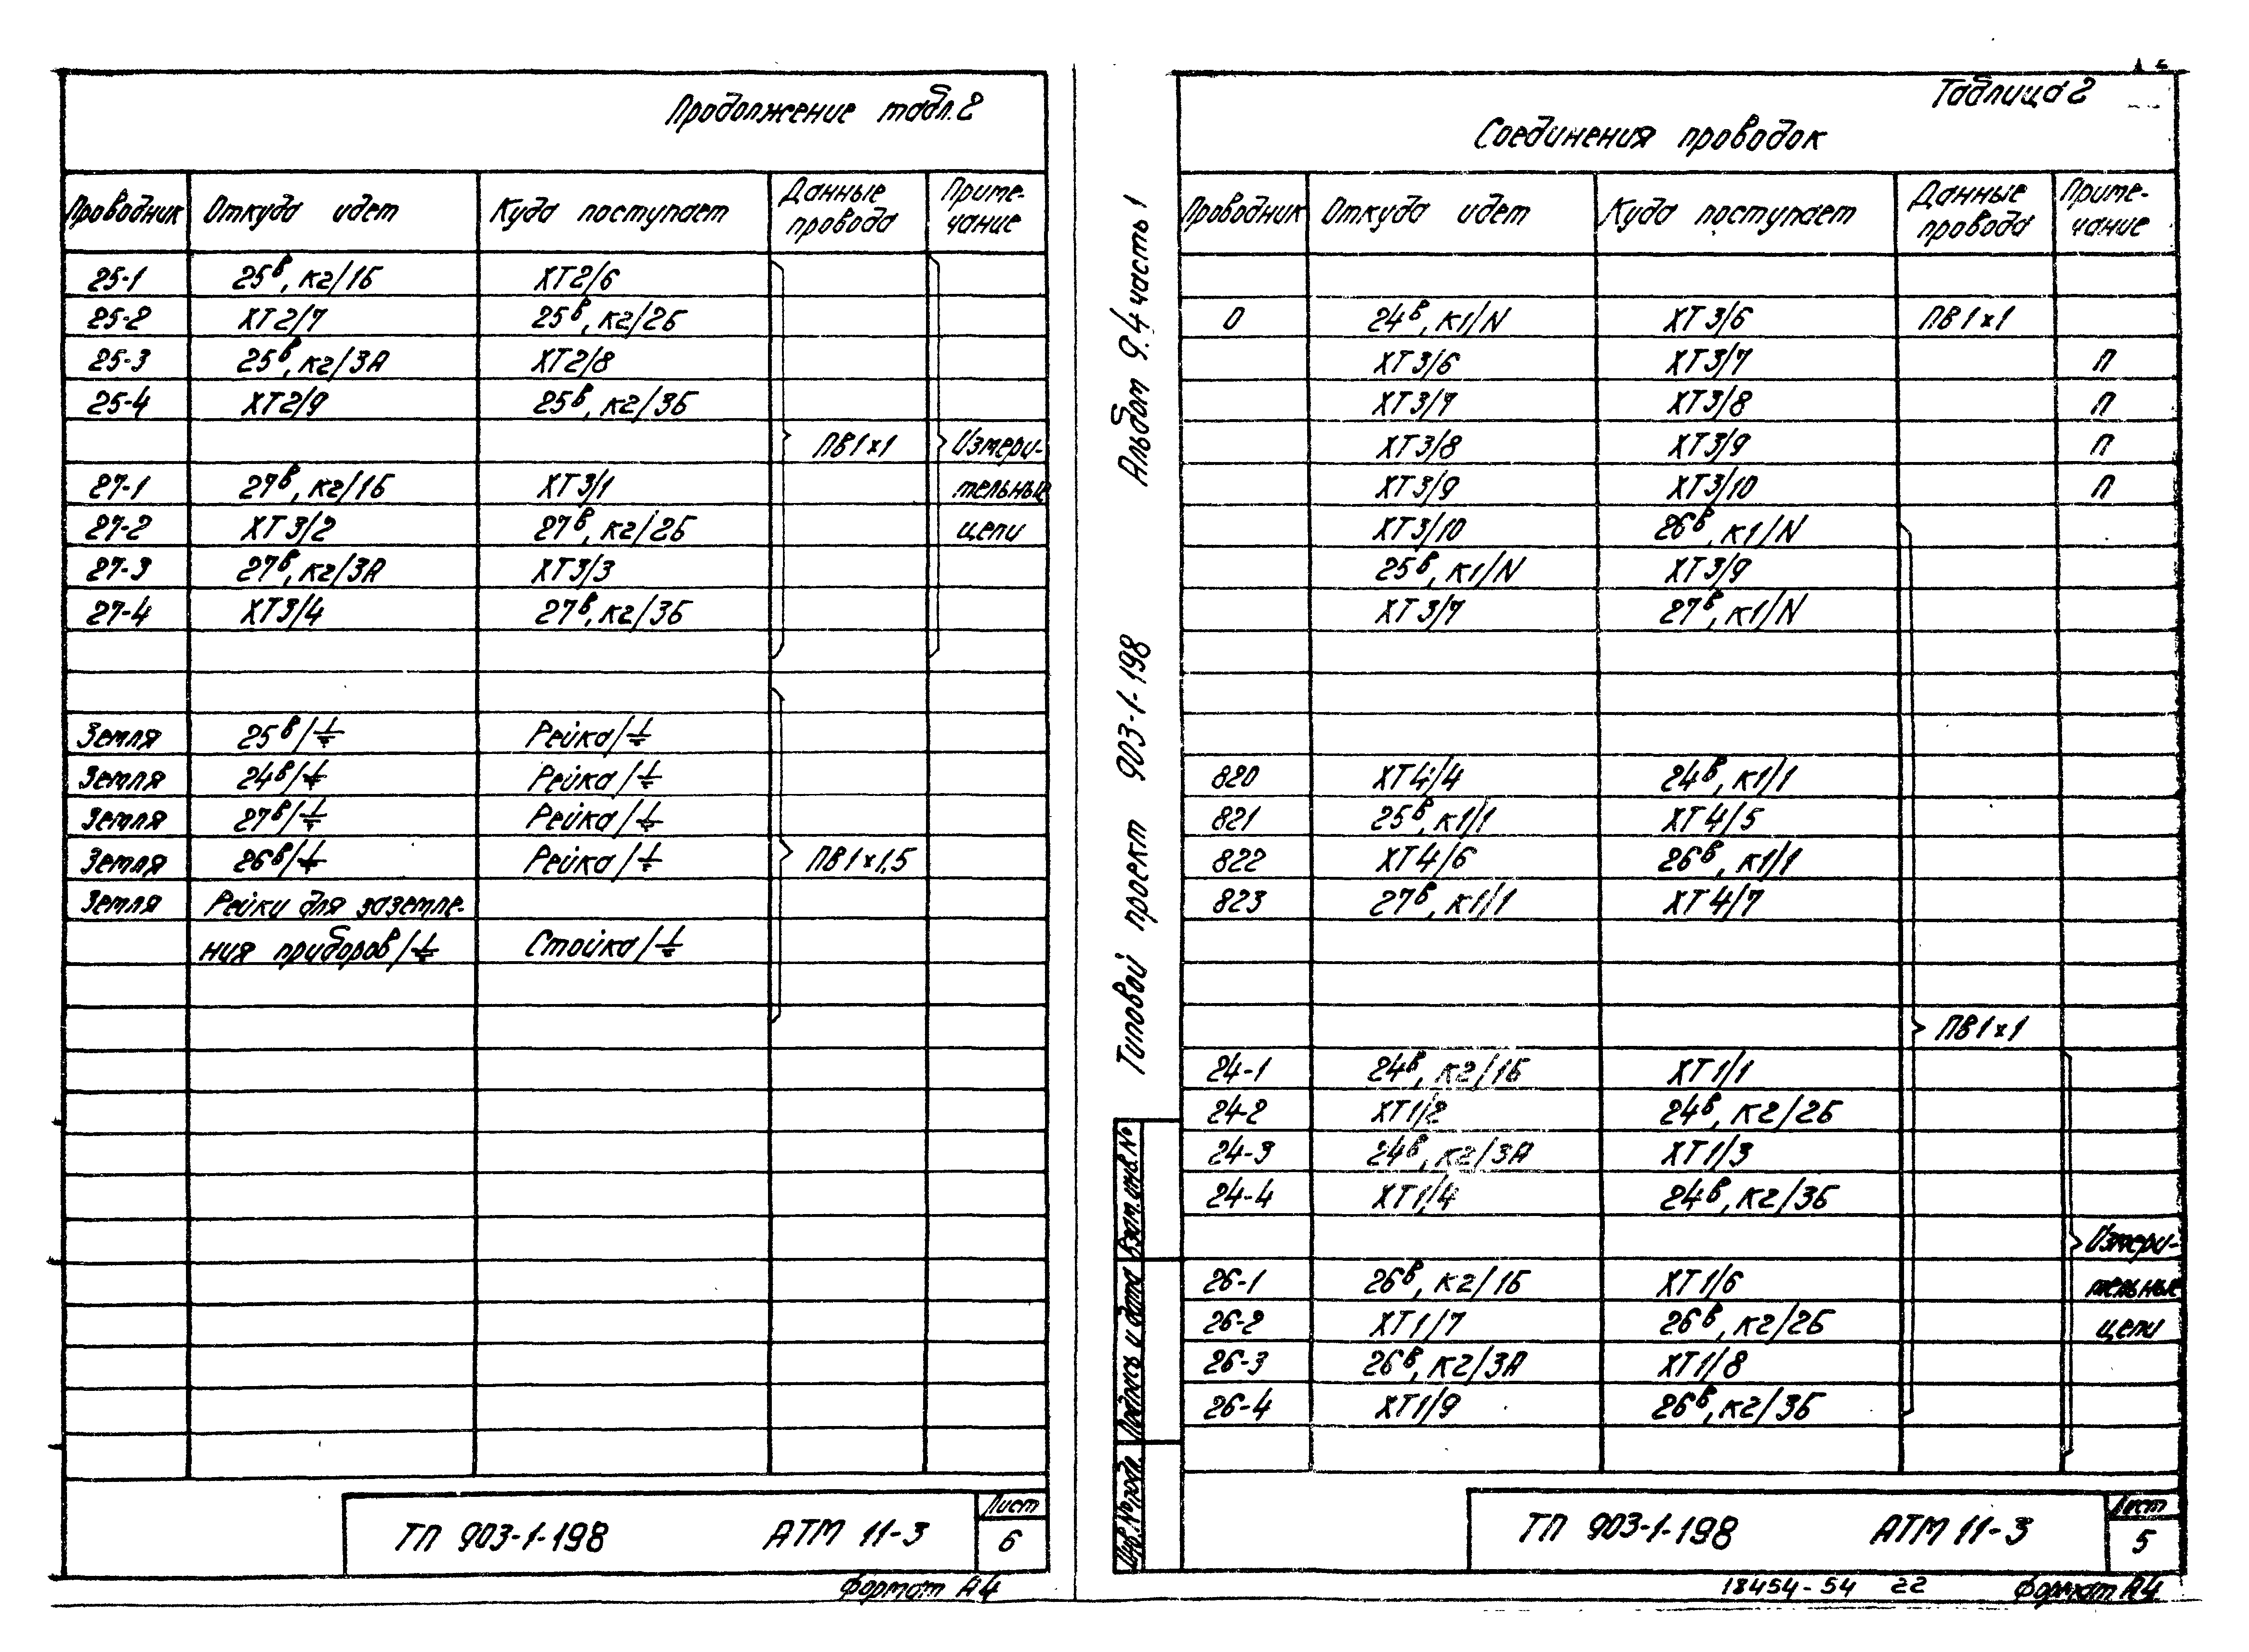 Продолжение табл. 2
Проводник Откуда идет Куда поступает Данные провода Приме-чание
25-1 25в, кг/1Б ХТ2/6
25-2 ХТ2/7 25в, кг/2Б
25-3 25в, кг/3А ХТ2/8
25-4 ХТ2/9 25в, кг/3Б
ПВ1х1 Измери-
27-1 27в, кг/1Б ХТ3/1 тельные
27-2 ХТ3/2 27в, кг/2Б цепи
27-3 27в, кг/3А ХТ3/3
27-4 ХТ3/4 27в, кг/3Б
Земля 25в/⏚ Рейка/⏚
Земля 24в/⏚ Рейка/⏚
Земля 27в/⏚ Рейка/⏚
Земля 26в/⏚ Рейка/⏚ ПВ1х1,5
Земля Рейки для заземле-
ния приборов/⏚ Стойка/⏚
ТП 903-1-198 АТМ 11-3 Лист
6
Формат А4
Типовой проект 903-1-198 Альбом 9.4 часть 1
Таблица 2
Соединения проводок
Проводник Откуда идет Куда поступает Данные провода Приме-чание
0 24в, к1/N ХТ3/6 ПВ1х1
ХТ3/6 ХТ3/7 П
ХТ3/7 ХТ3/8 П
ХТ3/8 ХТ3/9 П
ХТ3/9 ХТ3/10 П
ХТ3/10 26в, к1/N
25в, к1/N ХТ3/9
ХТ3/7 27в, к1/N
820 ХТ4/4 24в, к1/1
821 25в, к1/1 ХТ4/5
822 ХТ4/6 26в, к1/1
823 27в, к1/1 ХТ4/7
ПВ1х1
24-1 24в, кг/1Б ХТ1/1
24-2 ХТ1/2 24в, кг/2Б
24-3 24в, кг/3А ХТ1/3
24-4 ХТ1/4 24в, кг/3Б
Измери-
26-1 26в, кг/1Б ХТ1/6 тельные
26-2 ХТ1/7 26в, кг/2Б цепи
26-3 26в, кг/3А ХТ1/8
26-4 ХТ1/9 26в, кг/3Б
Инв.№ подл. Подпись и дата Взам.инв.№
ТП 903-1-198 АТМ 11-3 Лист
5
18454-54 22 Формат А4